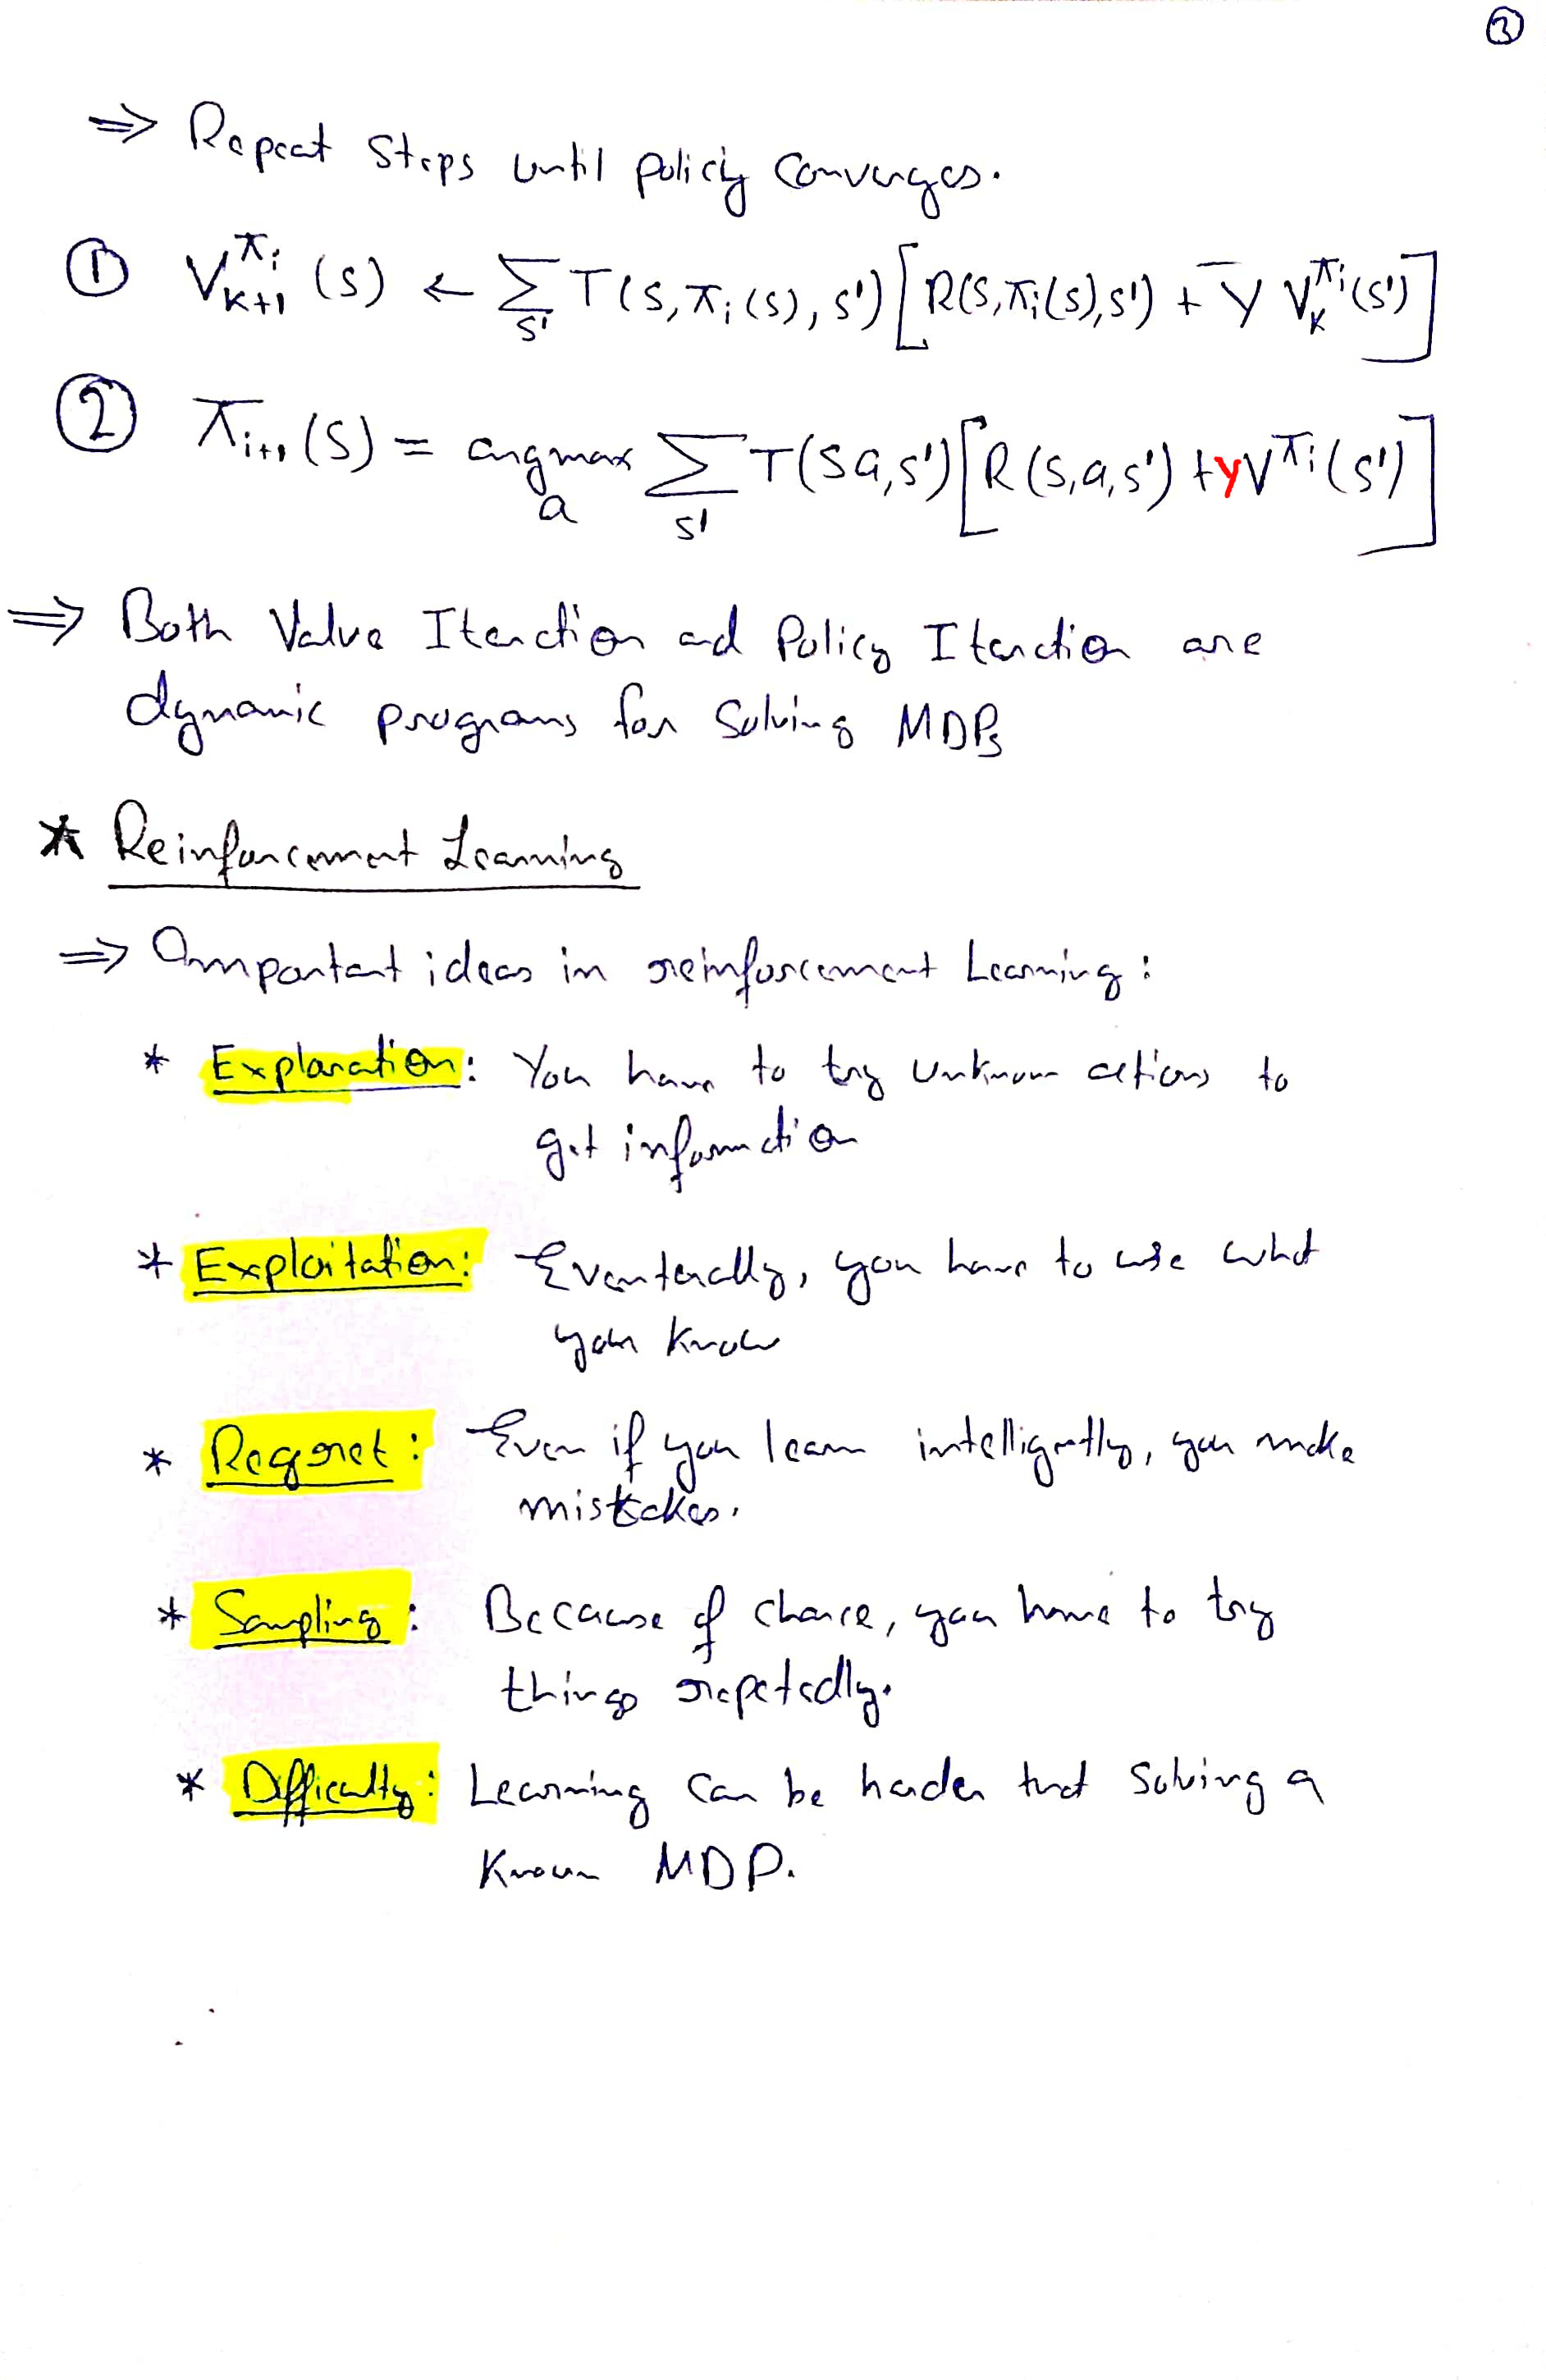 ③
⇒ Repeat Steps until policy converges.
① V_{k+1}^{π_i}(s) ← Σ_{s'} T(s, π_i(s), s') [R(s, π_i(s), s') + γ V_k^{π_i}(s')]
② π_{i+1}(s) = argmax_a Σ_{s'} T(s a, s') [R(s, a, s') + γ V^{π_i}(s')]
⇒ Both Value Iteration and Policy Iteration are
dynamic programs for solving MDPs
* Reinforcement Learning
⇒ Important ideas in reinforcement Learning :
* Exploration: You have to try unknown actions to
get information
* Exploitation: Eventually, you have to use what
you know
* Regret : Even if you learn intelligently, you make
mistakes.
* Sampling : Because of chance, you have to try
things repetedly.
* Difficulty : Learning can be harder that solving a
known MDP.